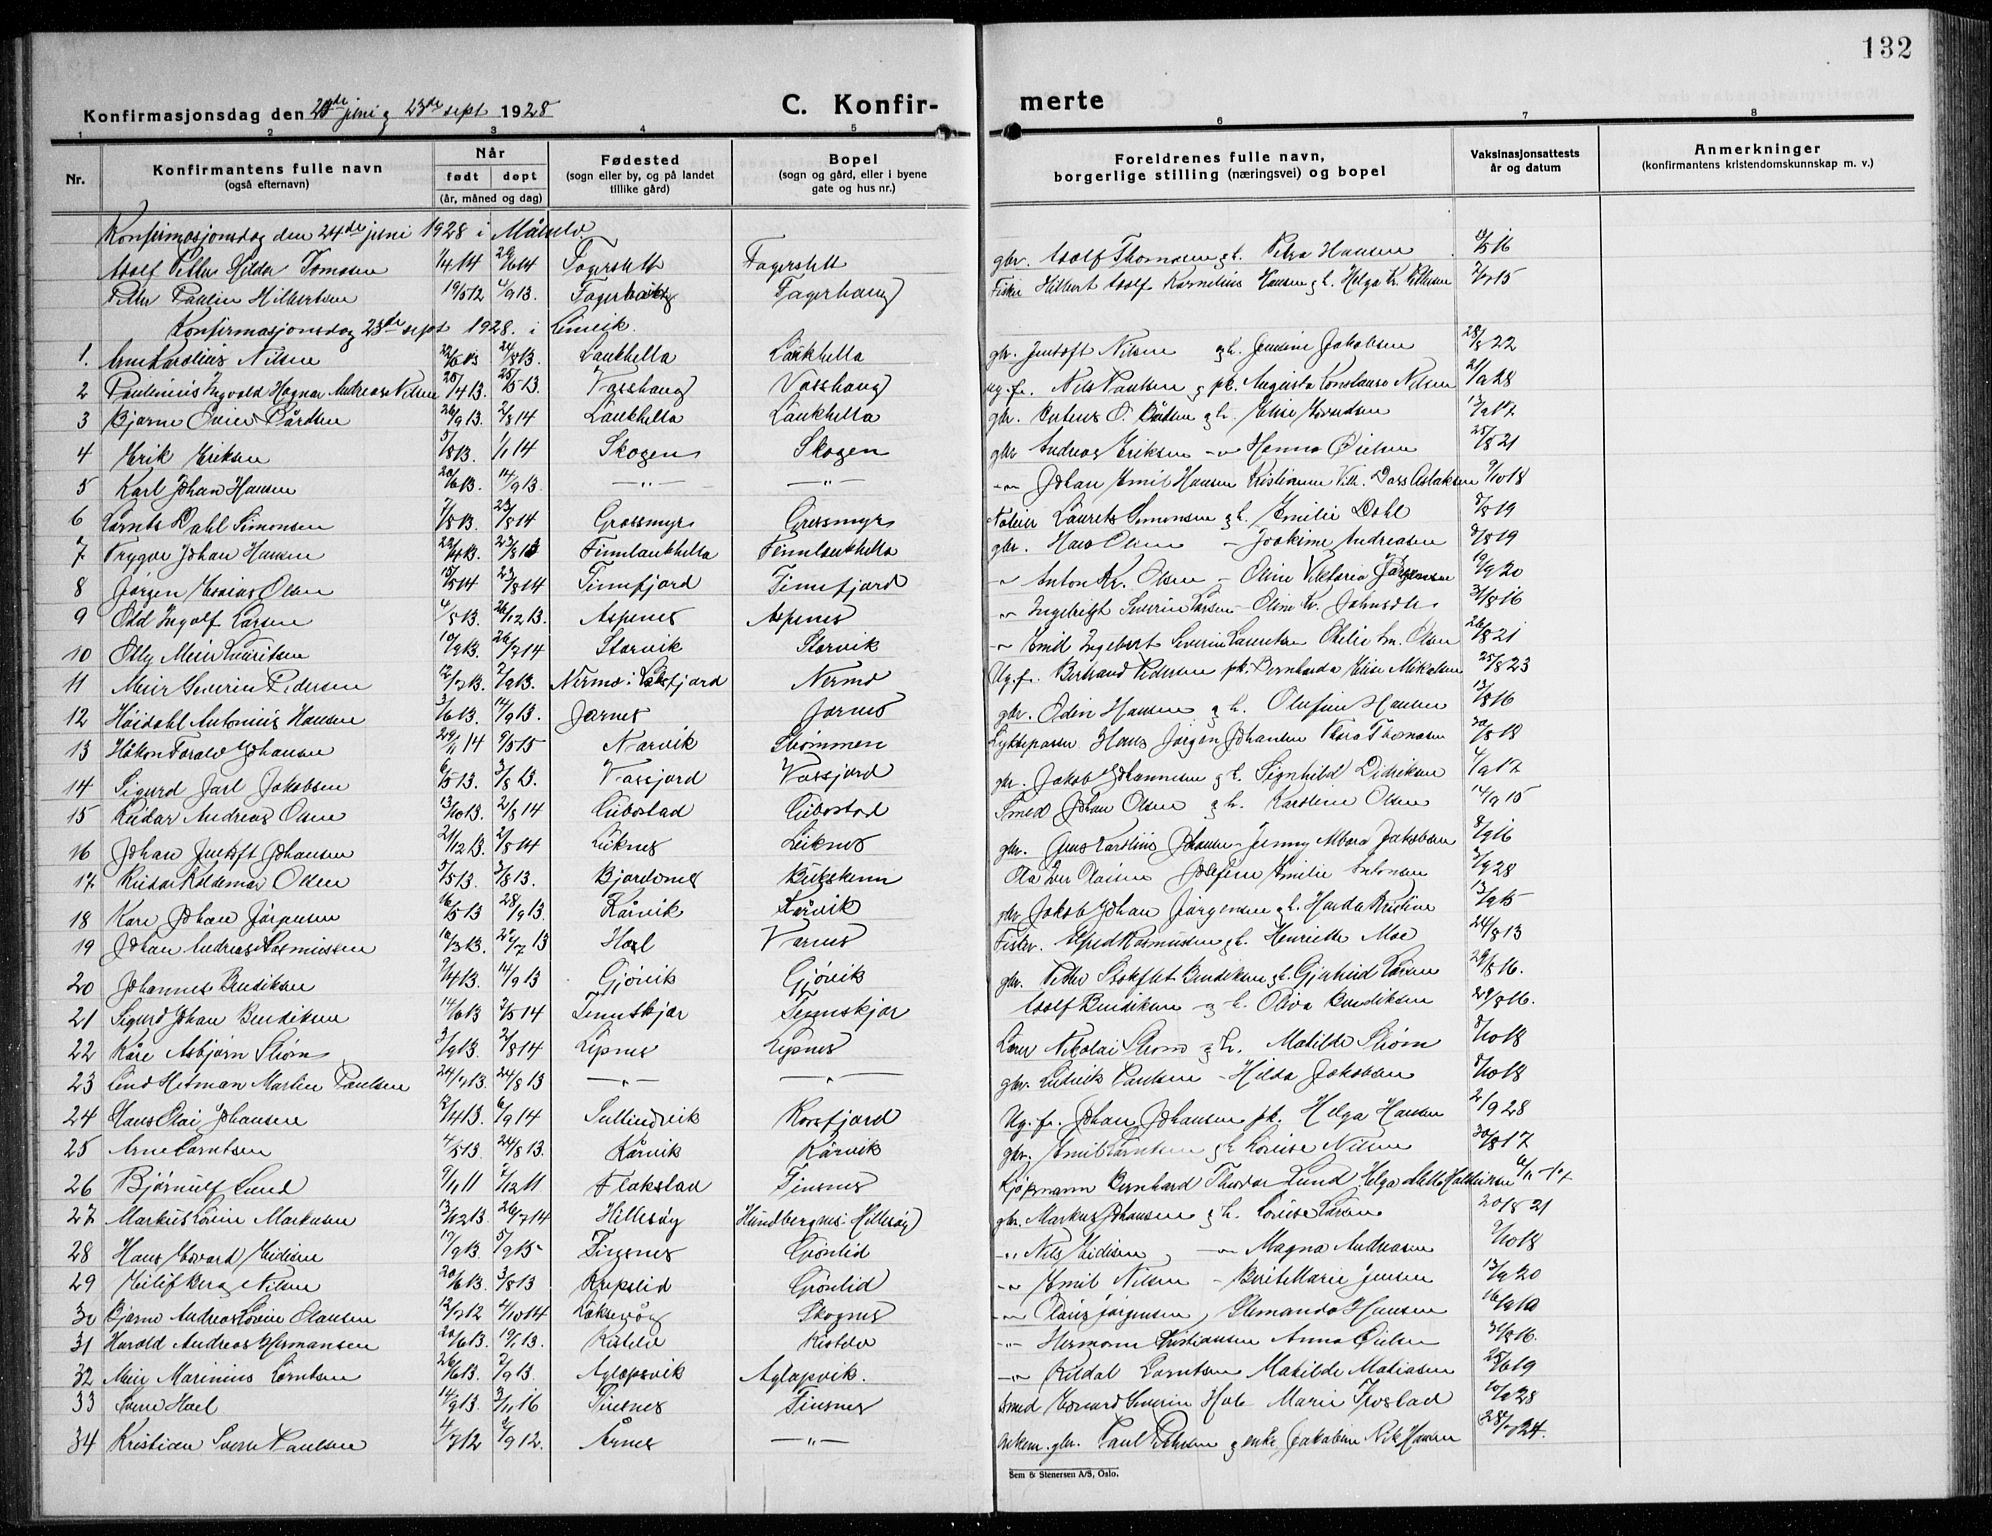 132
Konfirmasjonsdag den 24de juni og 23de sept 1928
C. Konfir-
merte
1 2 3 4 5 6 7 8
Nr.
Konfirmantens fulle navn
(også efternavn)
Når
født døpt
(år, måned og dag)
Fødested
(sogn eller by, og på landet
tillike gård)
Bopel
(sogn og gård, eller i byene
gate og hus nr.)
Foreldrenes fulle navn,
borgerlige stilling (næringsvei) og bopel
Vaksinasjonsattests
år og datum
Anmerkninger
(konfirmantens kristendomskunnskap m. v.)
Konfirmasjonsdag den 24de juni 1928 i Målselv
Adolf Petter Hilder Tomasen Fagerslett Fagerslett gbr. Adolf Thomasen og h. Petra Hansen
Peter Paulin Hilbertsen 19/5 12 Fagerhaug Fagerhaug Fisker Hilbert Adolf Kornelius Hansen og h. Helga Kr. Pettersen
Konfirmasjonsdag 23de sept 1928 i Lenvik.
1. Arne Karolius Nilsen 24/8 13. Laukhella Laukhella gbr. Jentoft Nilsen og h. Jensine Jakobsen 28/8 22
2 Paulinius Ingvald Hagnar Andreas Nilsen 25/5 13. Vasshaug Vasshaug ug.f. Nils Paulsen og pk. Augusta Konstanse Nilsen 21/9 28
3 Bjarne Bårdsen 26/9 13. 2/8 14 Laukhella Laukhella gbr. O. Bårdsen og h. Elise Edvardsen
4 Erik Eriksen 5/8 13. 1/1 14 Skogen Skogen gbr Andreas Eriksen -"- Hanna Øielsen 25/8 21
5 Karl Johan Hansen 20/6 13. 14/9 13. -"- -"- -"- Johan Emil Hansen Kristianne Vilh. Dass Aslaksen 9/10 18
6 Lornts Dahl Simonsen 7/8 13. 23/8 14 Grossmyr Gressmyr Laurets Simonsen og h. Emilie Dahl 8/8 19
7 Trygve Johan Hansen 22/4 13. 23/8 13 Finnlaukhella Finnlaukhella gbr. Hans Olsen - Joakime Andreasen 8/8 19
8 Jørgen Esaias Olsen 15/5 14 23/8 14 Finnfjord Finnfjord -"- Anton Kr. Olsen - Oline Viktoria Jørgensen 10/9 20
9 Odd Ingolf Larsen 4/8 13. 26/12 13. Aspenes Aspenes -"- Ingebrigt Severin Larsen - Oline Kr. Johnsdtr. 31/8 16
10 Otly Meier Lauritsen 10/9 13. 26/7 14 Storvik Storvik -"- Emil Ingebert Severin Lauritsen Otelie Em. Olsen 26/8 21
11 Meier Severin Pedersen 12/7 13. 7/9 13. Nermo i Laksfjord Nermo Ug.f. Bertrand Pedersen pk. Bernharda Elise Mikalsen 25/8 23
12 Høidahl Antonius Hansen 3/6 13. 14/9 13. Jarnes Jarnes gbr. Odin Hansen og h. Olufine Hansen 13/8 16
13 Håkon Torald Johansen 29/11 14 9/5 15 Narvik Strømmen Lyktepasser Hans Jørgen Johansen Thomasen 30/8 18
14 Sigurd Jarl Jakobsen 6/5 13. 3/8 13. Vassjord Vassjord gbr. Jakob Johannesen og h. Signhild Didriksen 4/9 17
15 Reidar Andreas Olsen 13/10 13. 2/8 14 Gibostad Gibostad Smed Johan Olsen og h. Karoline Olsen 14/9 15
16 Johan Jentoft Johansen 21/12 13. 2/8 14 Leiknes Leiknes gbr. Jens Karolius Johansen - Jenny Albora Jakobsen 8/9 16
17 Reidar Koldemar Olsen 5/5 13. 3/8 13. Bjordnes Bukskinn Josefine Emilie Antonsen 3/9 28
18 Kåre Johan Jørgensen 16/5 13 28/9 13. Kårvik Kårvik gbr Jakob Johan Jørgensen og h. Harda Kristine 13/9 15
19 Johan Andreas Rasmussen 10/3 13. Hoel Varnes Fisker. Alfred Rasmussen og h. Henriette Moe 24/8 13
20 Johannes Bendiksen 9/4 13. 14/9 13 Gjövik Gjövik gbr. Petter Stokflet Bendiksen og h. Gjertrud Larsen 29/8 16.
21 Sigurd Johan Bendiksen 14/6 13. 3/5 14 Tennskjær Tennskjær Adolf Bendiksen og h. Oliva Bendiksen 29/8 16.
22 Kåre Asbjørn Strøm 3/9 13. 2/8 14 Lysnes Lysnes Lærer Nikolai Strøm og h. Matilde Strøm 8/10 18
23 Hetman Martin Paulsen 24/7 13. 24/8 13 -"- -"- gbr. Ludvik Paulsen - Hilda Jakobsen 8/10 18
24 Hans Olai Johansen 2/4 13. 6/9 14 Rossfjord Ug.f. Johan Johansen pk. Helga Hansen 2/9 28
25 Arne Larntsen 4/8 13. 24/8 13. Kårvik Kårvik gbr. Emil Larntsen og h. Lovise Nilsen 30/8 17
26 Bjørnulf Lund 9/1 11 7/12 11 Flakstad Finsnes Kjøpmann Bernhard Theodor Lund Helga
27 Markus Lovin Markusen 13/12 13. 26/7 14 Hillesøy Hundbergnes i Hillesøy gbr. Markus Johansen og h. Lovise Larsen 20/8 21
28 Hans Edvard Eidisen 19/9 13. 5/9 15 Finsnes Grönlid -"- Nils Eidisen -"- Magna Andreasen 9/10 18
29 Eilif Berg Nilsen 20/6 13. 3/8 13 Krepslid Grönlid -"- Emil Nilsen - Berit Marie Jensen 13/9 20
30 Bjarne Andreas Lovin Olausen 12/7 12 4/10 14 Laksevåg Skognes -"- Olaus Jørgensen Elemanda Hansen
31 Harald Andreas Hermansen 20/6 13. Kistelv Kistelv -"- Hermann Kristiansen Anna Øielsen 31/8 16.
32 Meier Marinius Lorntsen 26/6 13. 7/9 13. Aglapsvik Aglapsvik. -"- Reidal Lorntsen Matilde Matiasen 25/6 19
33 Sverre Hoel 14/9 13. 3/11 16 Finsnes Finsnes Smed Edvard Severin Hole Marie Trostad 10/9 28
34 Kristian Sverre Paulsen 4/7 12 8/9 12. Årnes -"- avkom. gbr. Paul Pedersen og enke Jakobine Nik Hansen
Sem & Stenersen A/S, Oslo.